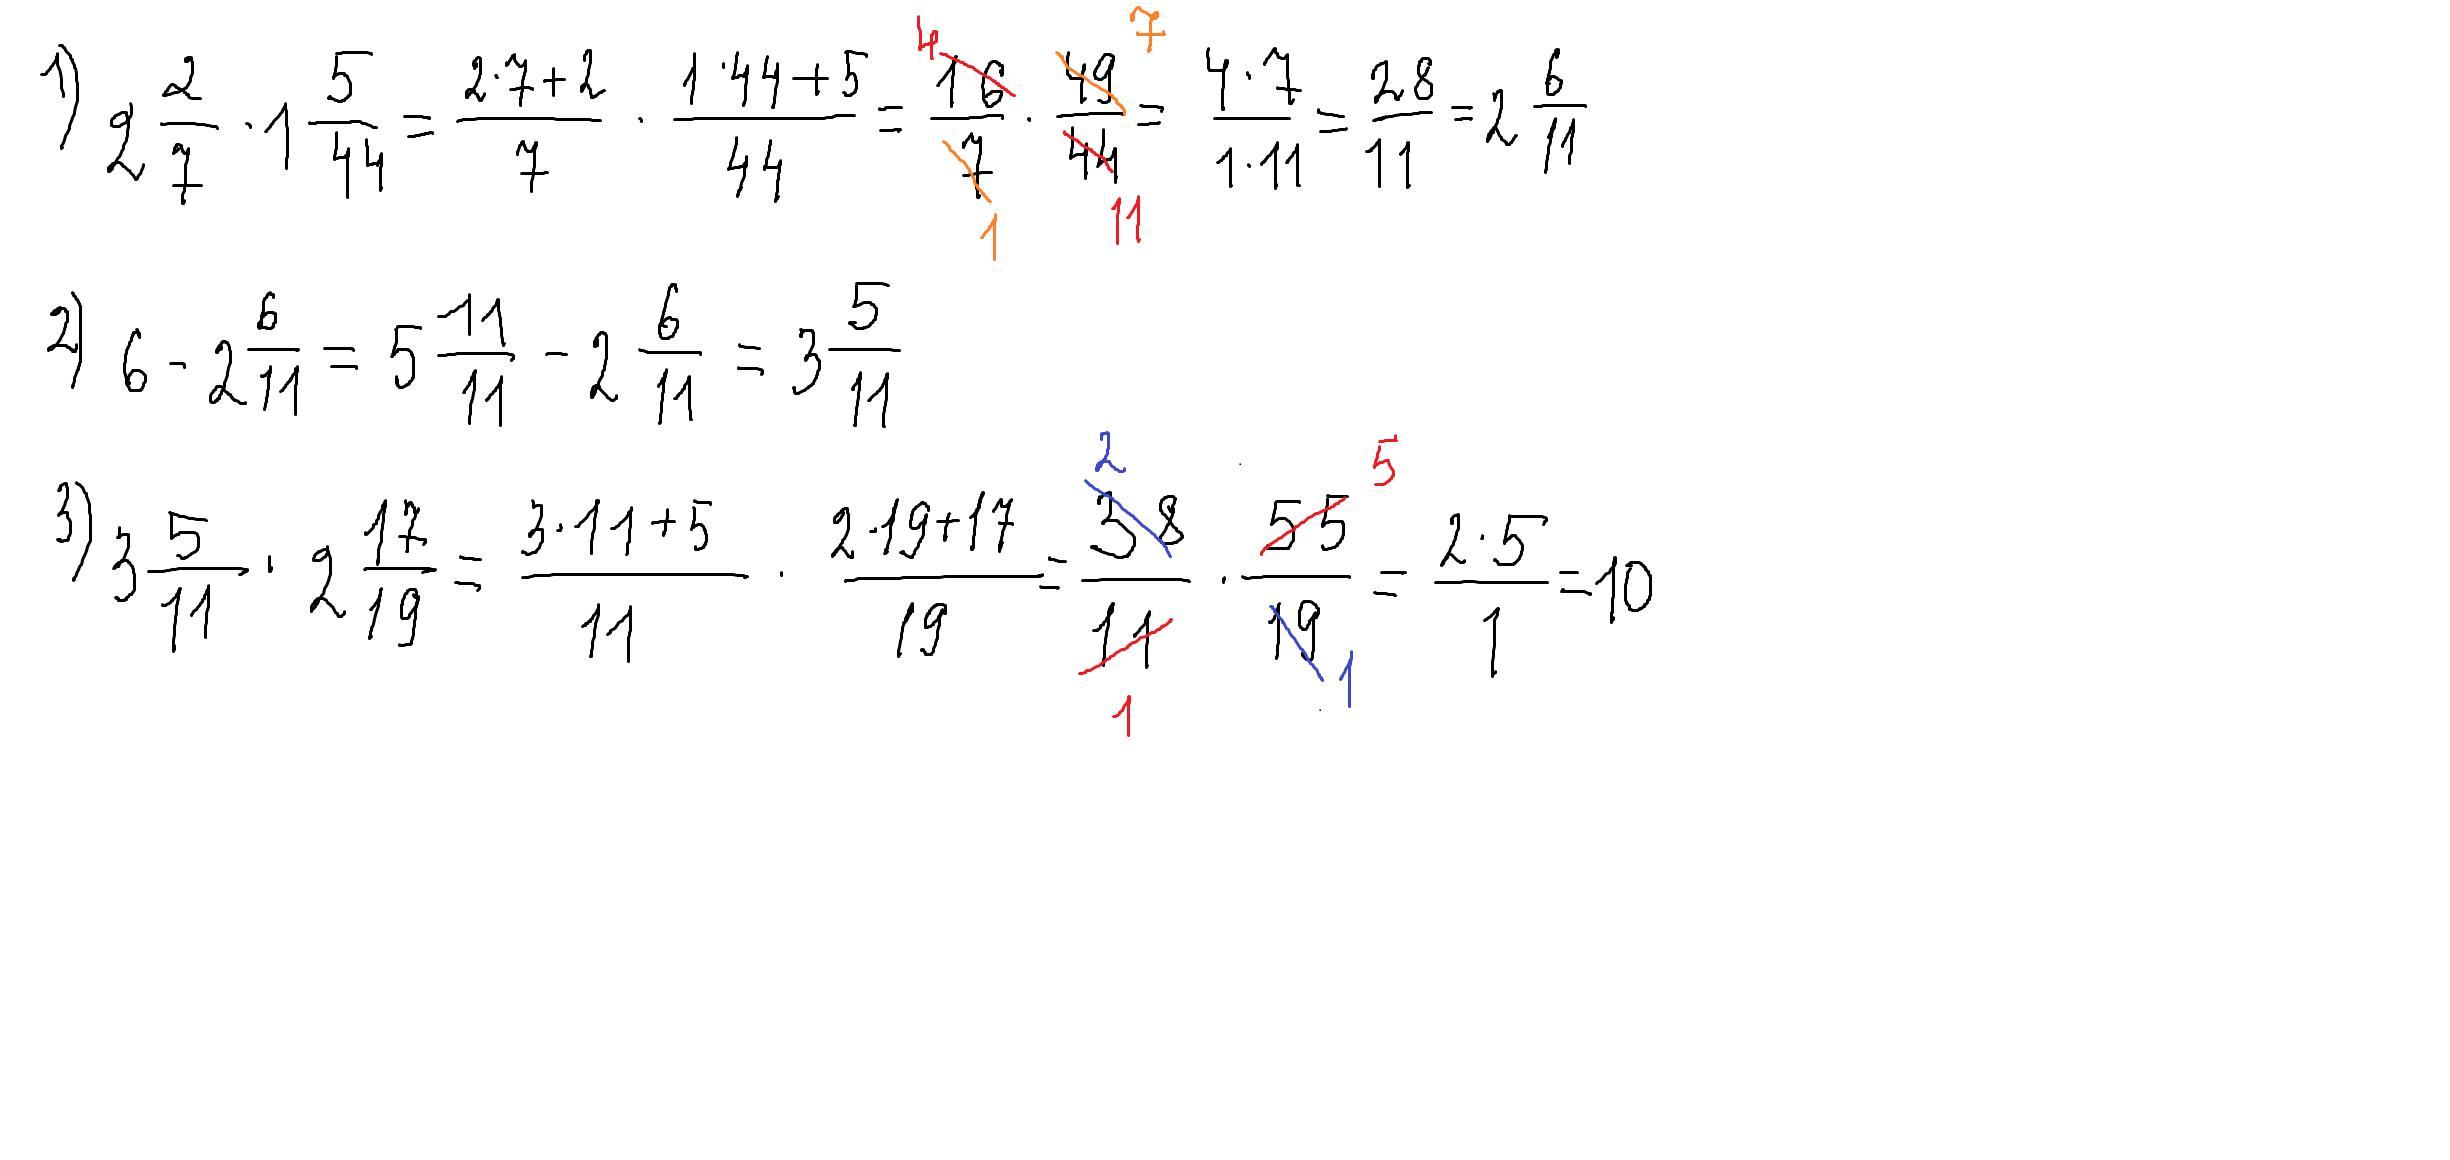 1) 2 2/7 · 1 5/44 = (2·7+2)/7 · (1·44+5)/44 = 16/7 · 49/44 = (4·7)/(1·11) = 28/11 = 2 6/11
4 7 1 11
2) 6 - 2 6/11 = 5 11/11 - 2 6/11 = 3 5/11
3) 3 5/11 · 2 17/19 = (3·11+5)/11 · (2·19+17)/19 = 38/11 · 55/19 = (2·5)/1 = 10
2 5 1 1